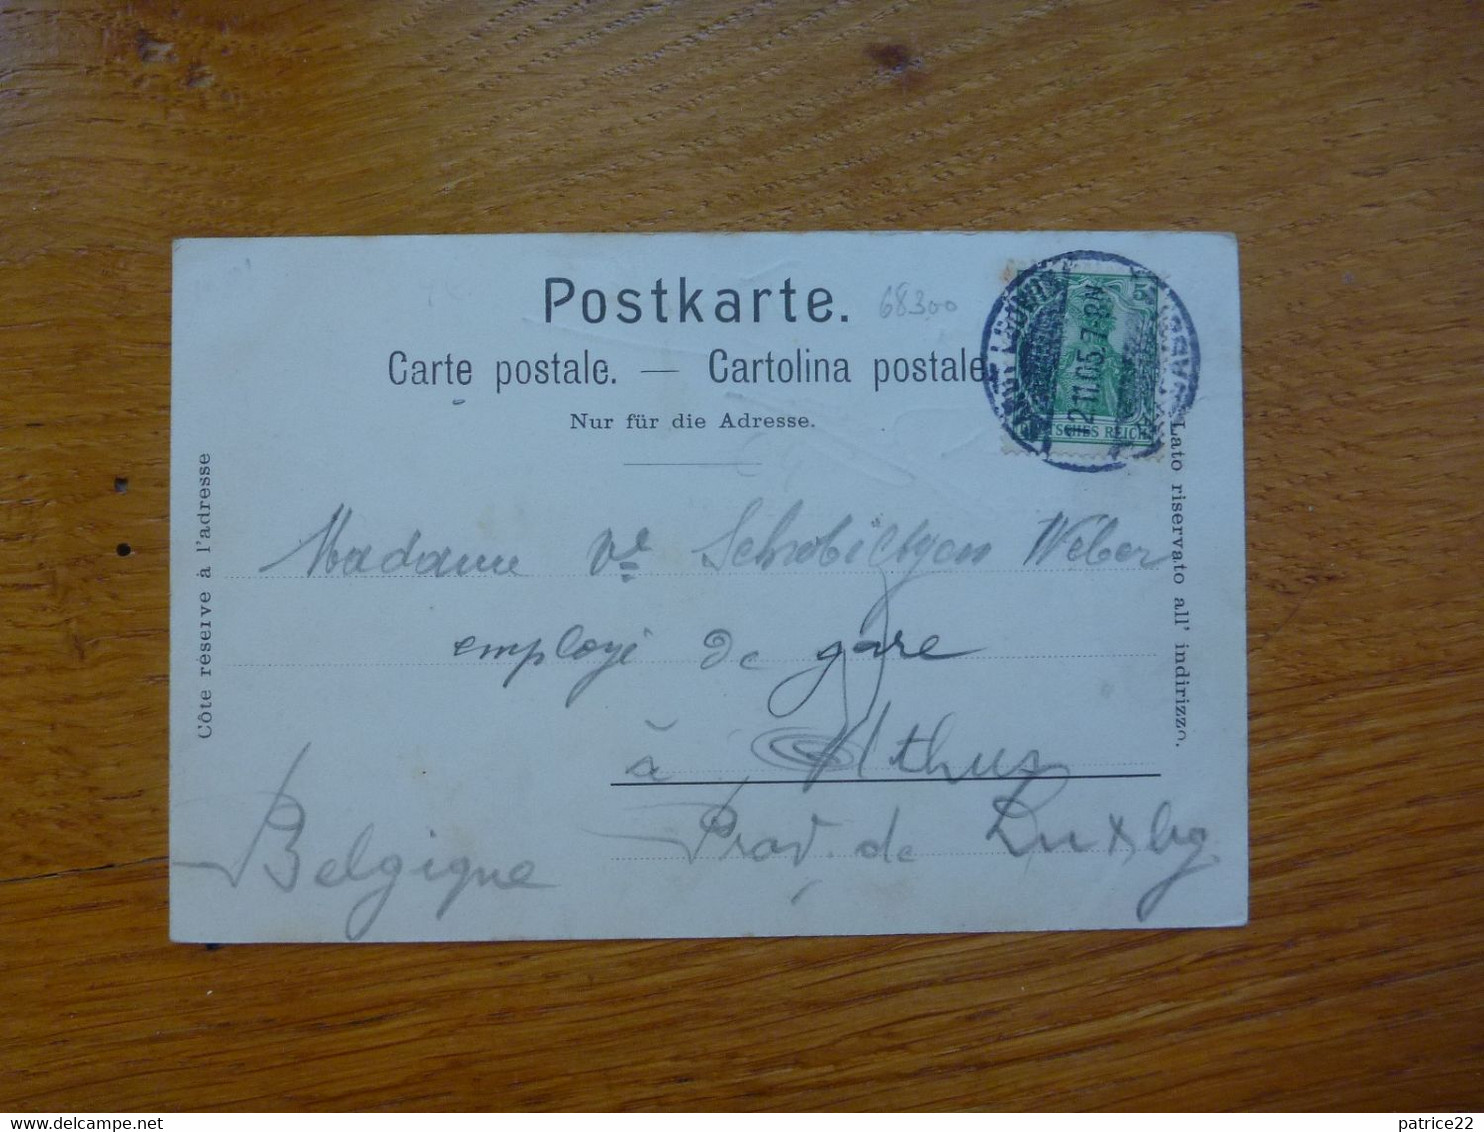 Postkarte.
68300
Carte postale. — Cartolina postale
Nur für die Adresse.
5
DEUTSCHES REICH
2.11.05.7-8N
Côte réservé à l'adresse
Lato riservato all' indirizzo.
Madame Ve Weber
employé de gare
à Athus
Prov. de Luxbg
Belgique
patrice22